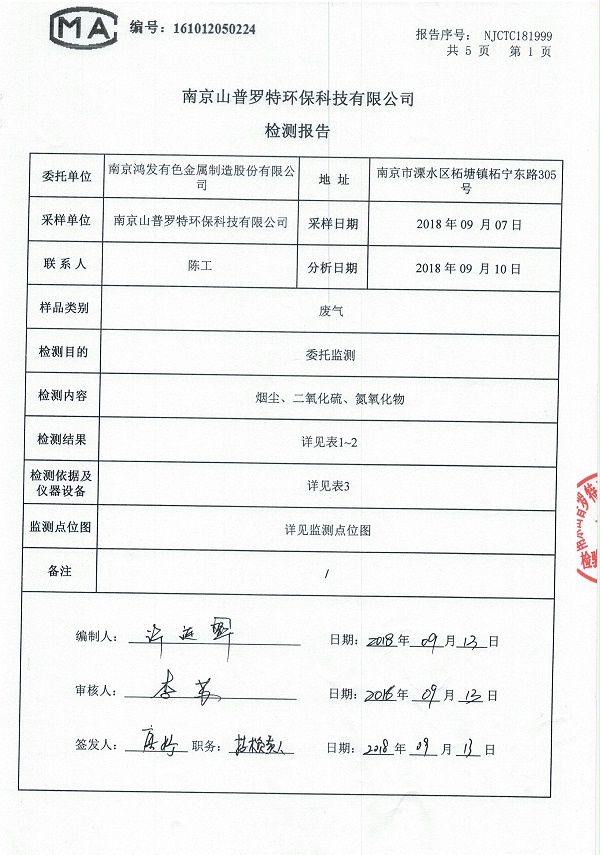 MA 编号：161012050224
报告序号： NJCTC181999
共 5 页 第 1 页
南京山普罗特环保科技有限公司
检测报告
委托单位 南京鸿发有色金属制造股份有限公司 地 址 南京市溧水区柘塘镇柘宁东路305号
采样单位 南京山普罗特环保科技有限公司 采样日期 2018 年 09 月 07 日
联 系 人 陈工 分析日期 2018 年 09 月 10 日
样品类别 废气
检测目的 委托监测
检测内容 烟尘、二氧化硫、氮氧化物
检测结果 详见表1~2
检测依据及仪器设备 详见表3
监测点位图 详见监测点位图
备注 /
编制人： 日期：2018 年 09 月 13 日
审核人： 李 日期：2018 年 09 月 13 日
签发人： 职务： 日期：2018 年 09 月 13 日
罗特
检验